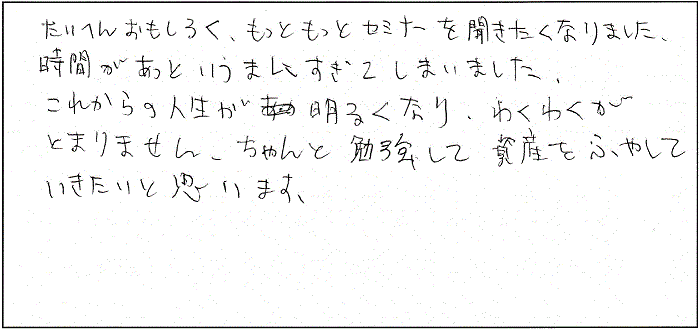 たいへんおもしろく、もっともっとセミナーを聞きたくなりました、
時間があっというまにすぎてしまいました、
これからの人生が明るくなり、わくわくが
とまりません、ちゃんと勉強して資産をふやして
いきたいと思います、